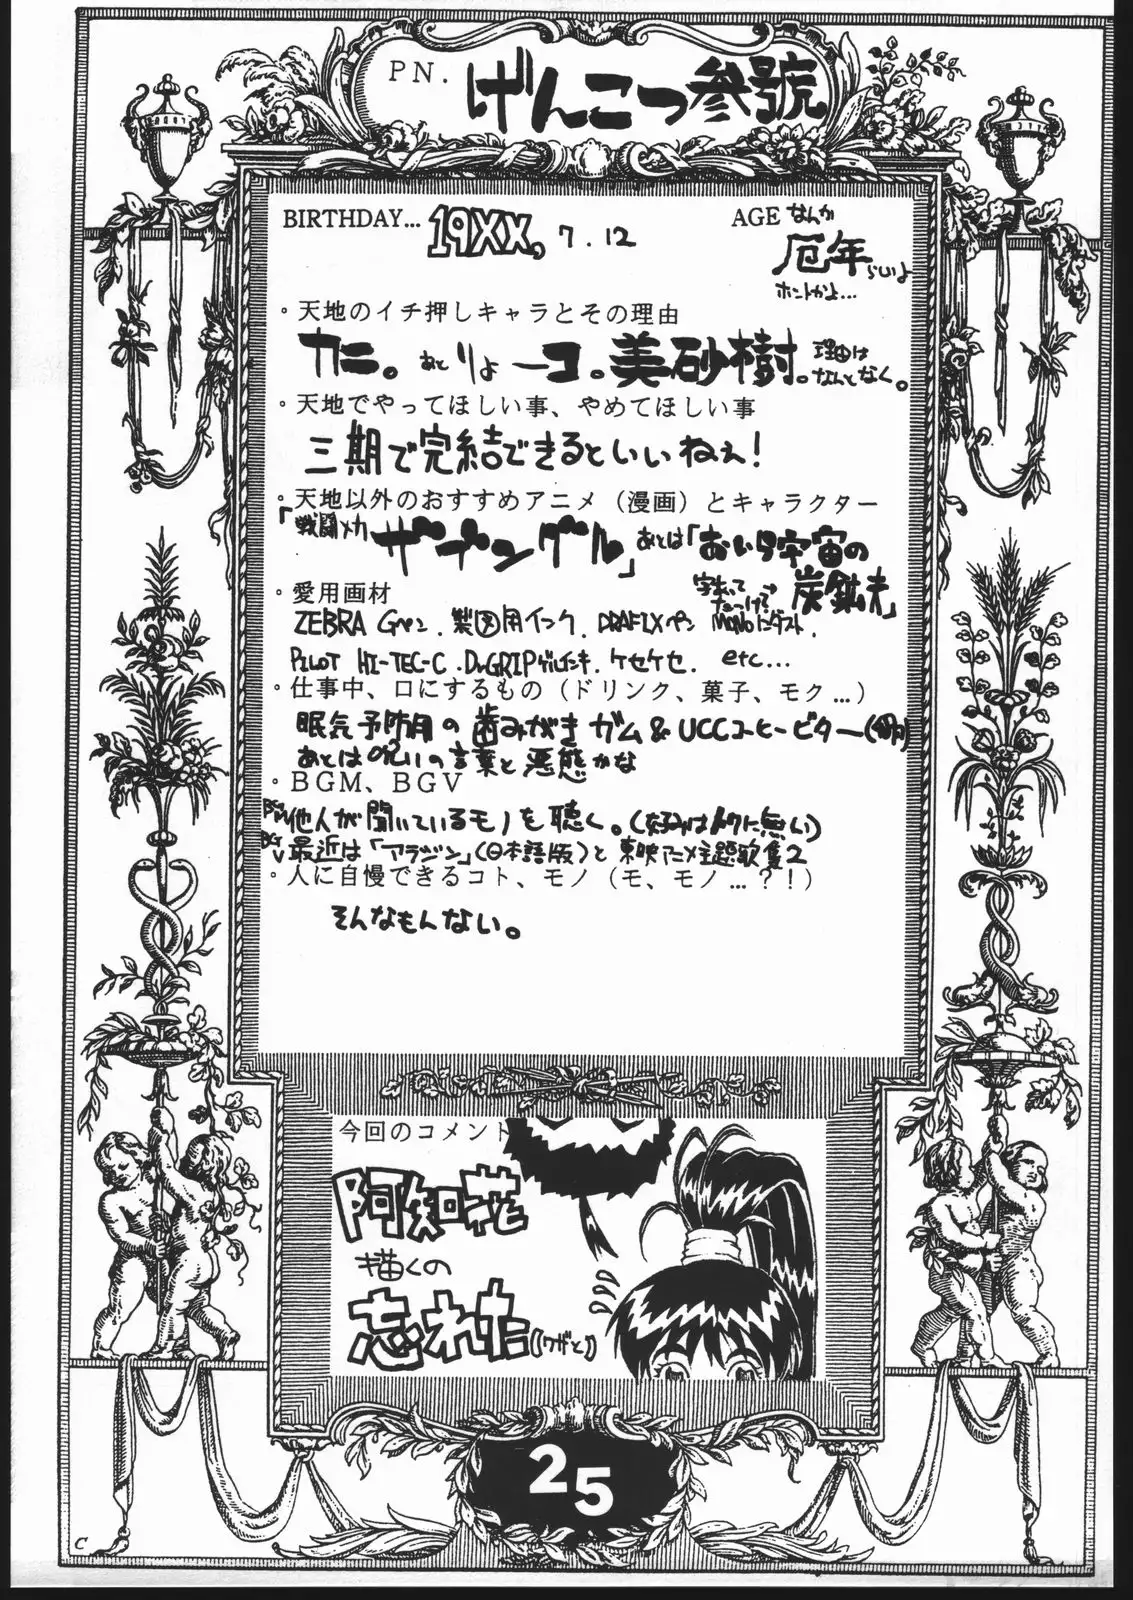 PN. げんこつ参號
BIRTHDAY... 19XX, 7.12
AGE なんか
厄年らしいよ
ホントかよ...
・天地のイチ押しキャラとその理由
カニ。あとりょーコ。美砂樹。理由はなんとなく。
・天地でやってほしい事、やめてほしい事
三期で完結できるといいねぇ!
・天地以外のおすすめアニメ（漫画）とキャラクター
「戦闘メカ ザブングル」あとは「おいら宇宙の
炭鉱夫」
・愛用画材
ZEBRA Gペン. 製図用インク. DRAFIXペン MONO
PILOT HI-TEC-C. Dr.GRIPゲルインキ. ケセケセ. etc...
・仕事中、口にするもの（ドリンク、菓子、モク...）
眠気予防用の歯みがきガム&UCCコーヒービター
あとは呪いの言葉と悪態かな
・BGM、BGV
BGM 他人が聞いているモノを聴く。(好みは特に無い)
BGV 最近は「アラジン」(日本語版)と東映アニメ主題歌集2
・人に自慢できるコト、モノ（モ、モノ...?!）
そんなもんない。
今回のコメント
阿知花
描くの
忘れた((ワザと))
25
C